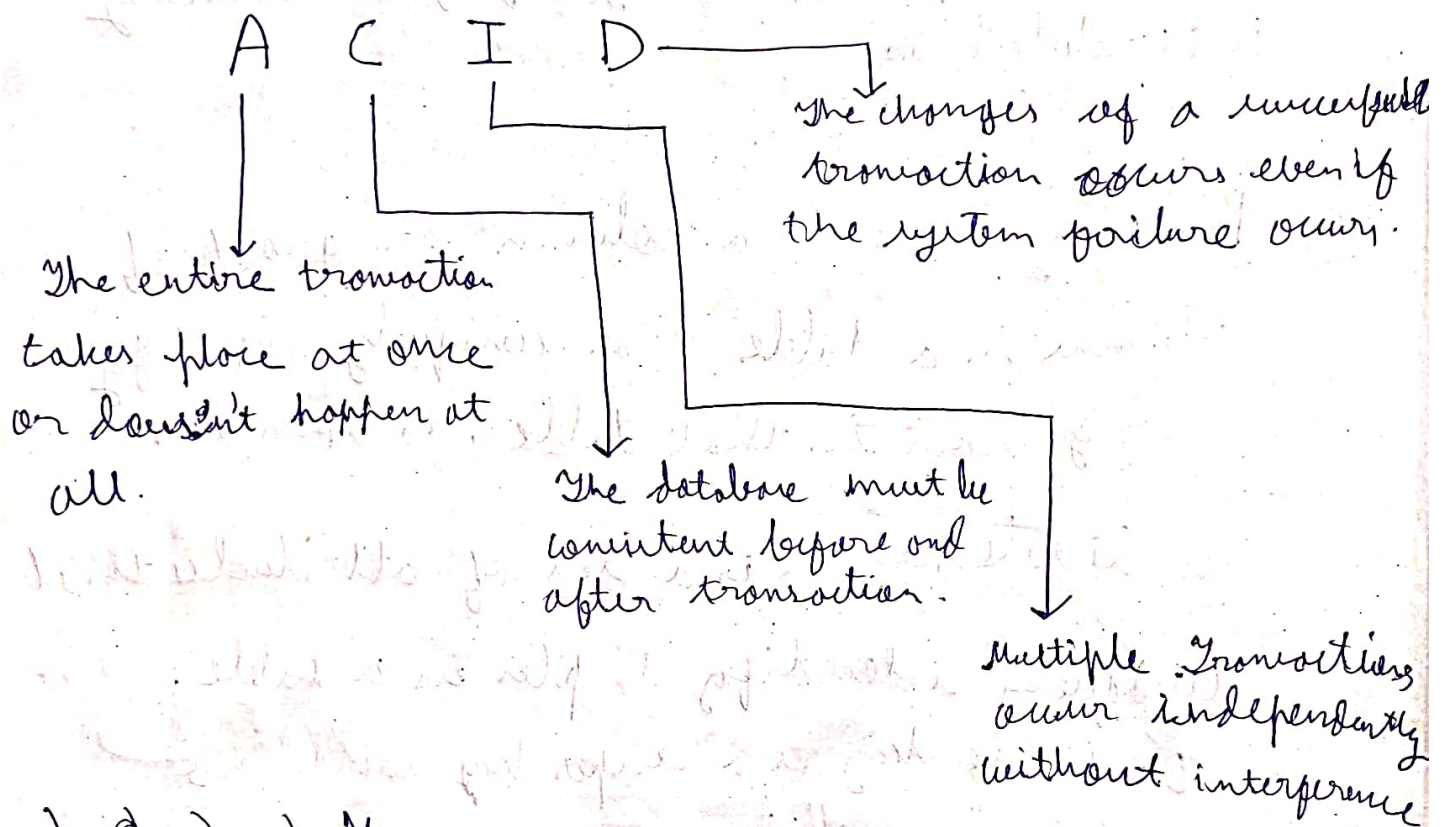 A C I D
The changes of a successful
transaction occurs even if
the system failure occurs.
The entire transaction
takes place at once
or doesn't happen at
all.
The database must be
consistent before and
after transaction.
Multiple Transactions
occur independently
without interference